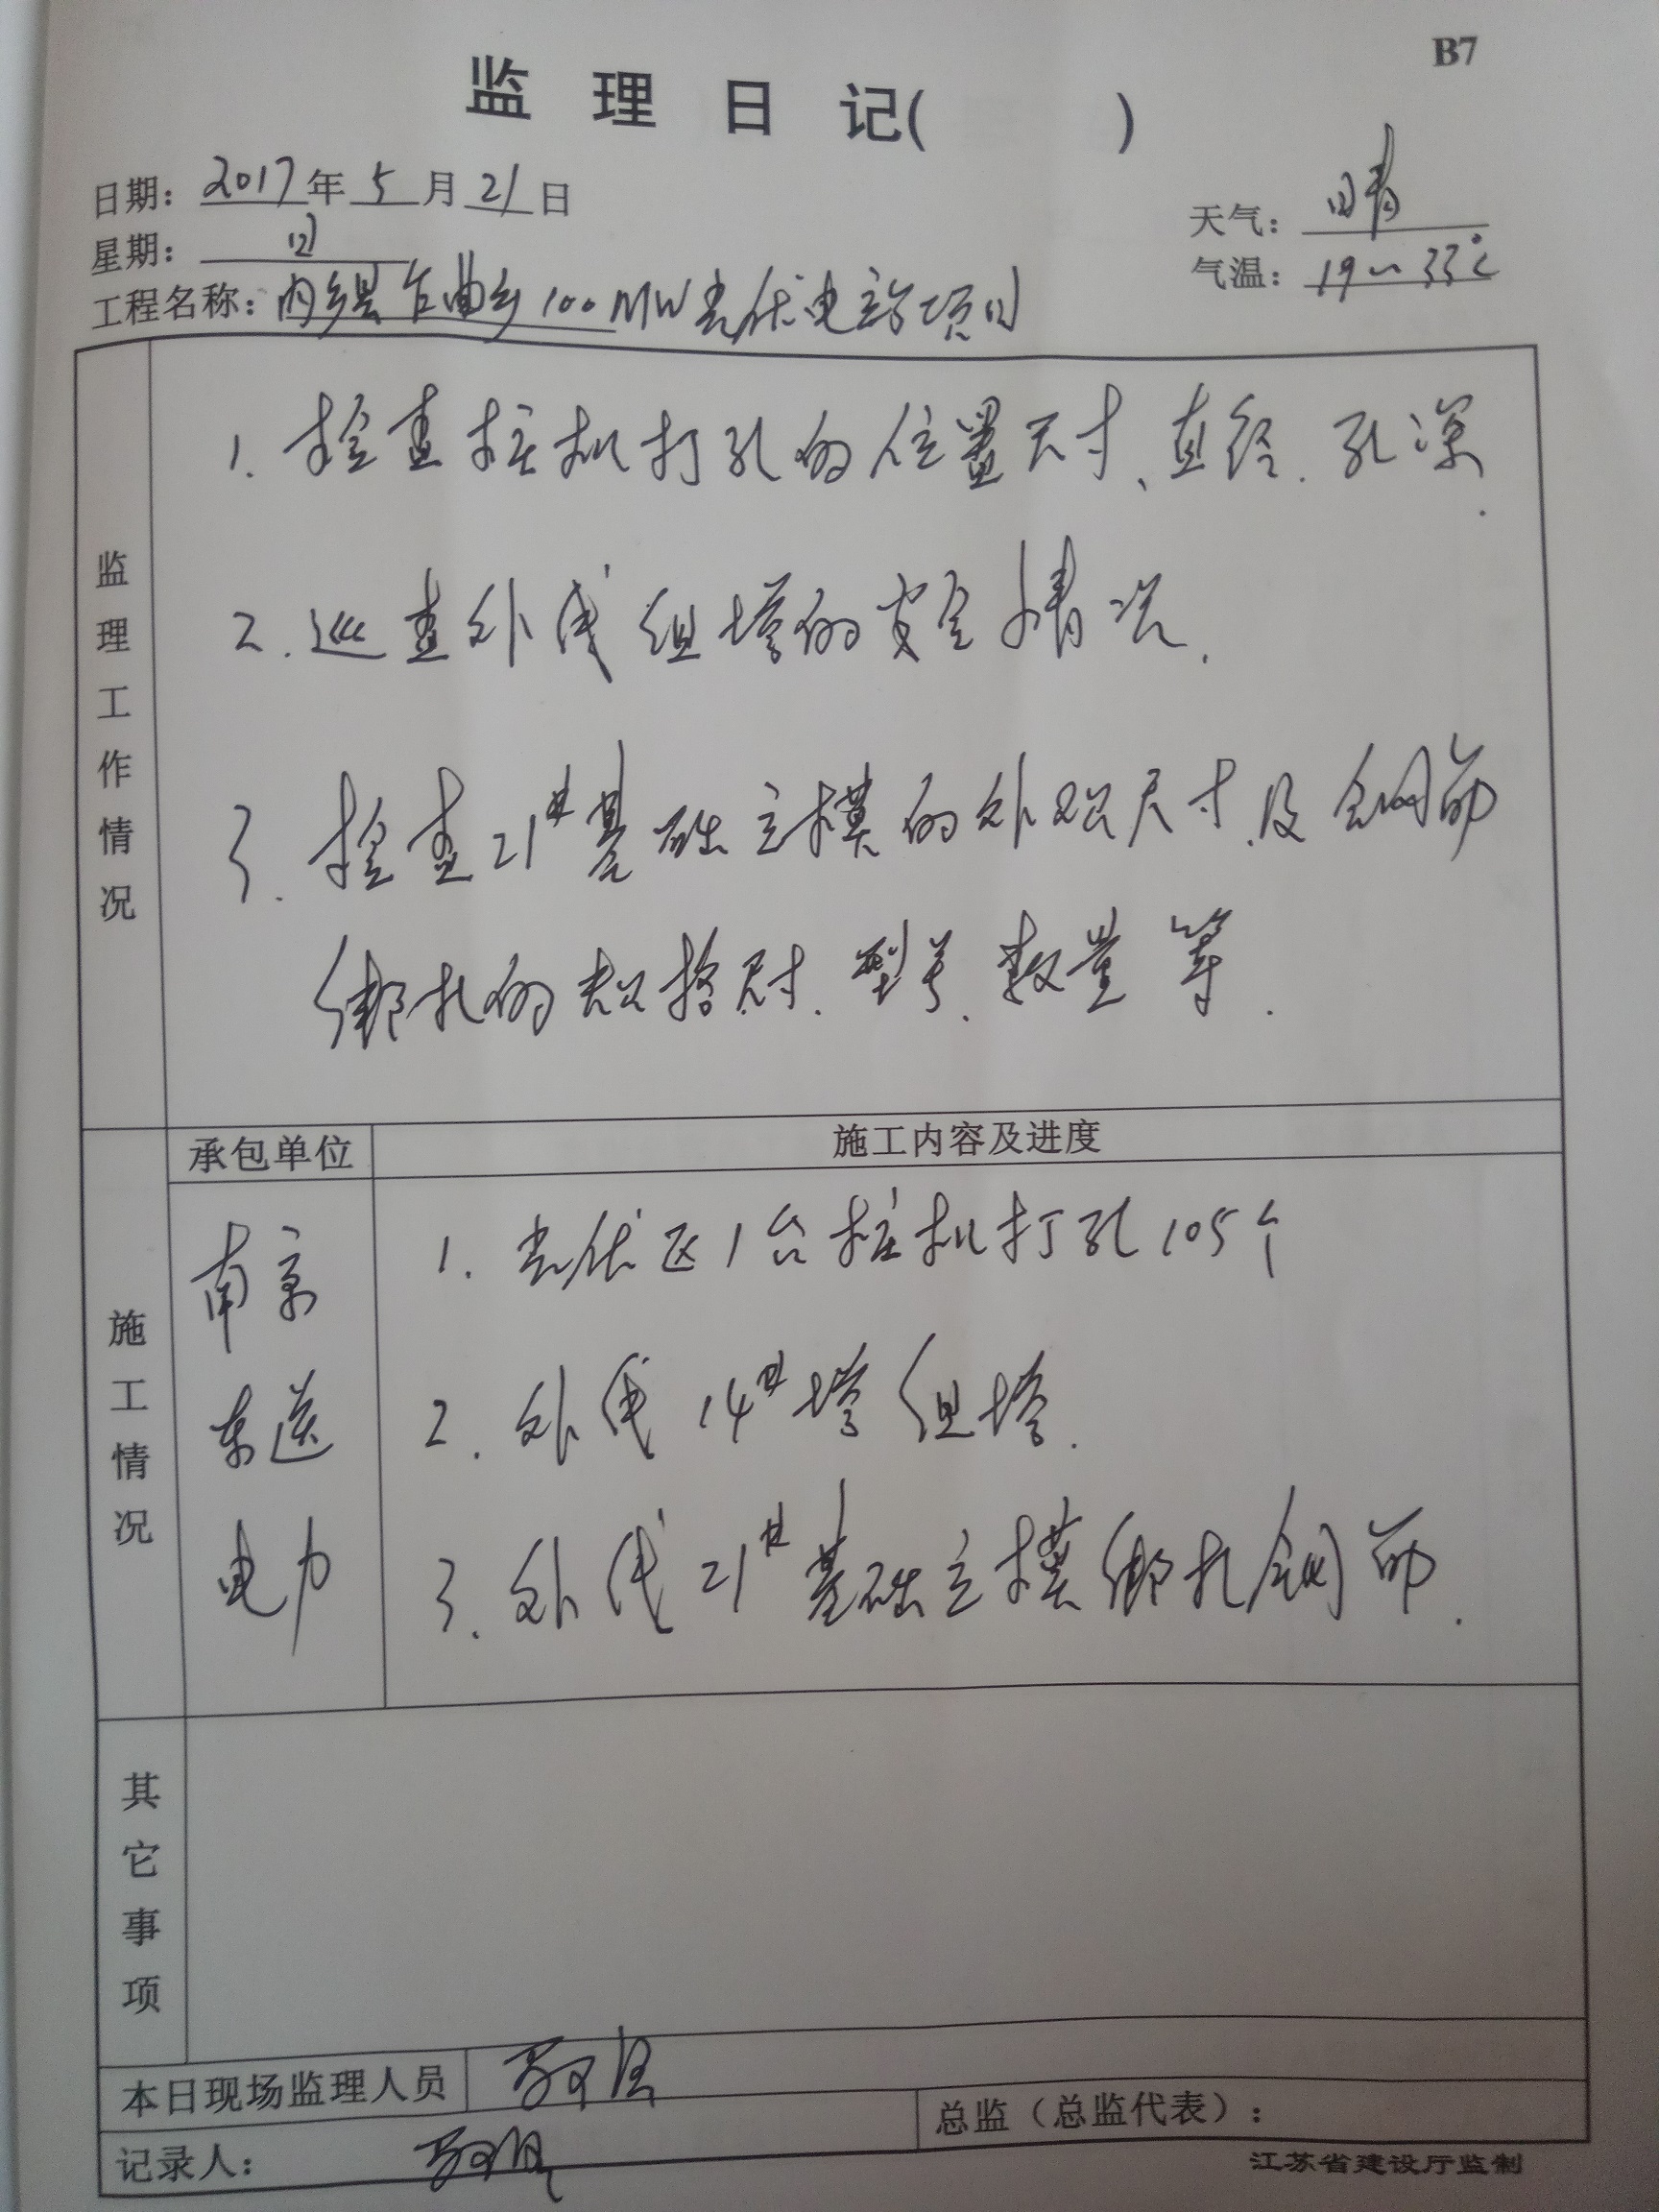 B7
监理日记( )
日期: 2017年5月21日
天气: 晴
星期: 日
气温: 19~33℃
工程名称: 内乡县乍曲乡100MW光伏电站项目
监理工作情况
1. 检查桩机打孔的位置尺寸、直径、孔深.
2. 巡查外线组塔的安全情况.
3. 检查21#基础立模的外观尺寸、及钢筋
绑扎的规格尺寸、型号、数量等.
承包单位
施工内容及进度
施工情况
南京
东送
电力
1. 光伏区1台桩机打孔105个
2. 外线14#塔组塔.
3. 外线21#基础立模绑扎钢筋.
其它事项
本日现场监理人员
总监（总监代表）:
记录人:
江苏省建设厅监制